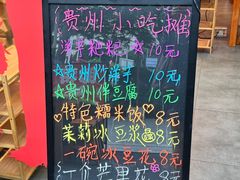 贵州小吃摊
洋芋粑粑 10元
☆贵州炒洋芋 10元
☆贵州伴豆腐 10元
特色糯米饭♡8元
茉莉冰豆浆 8元
一碗冰豆花 8元